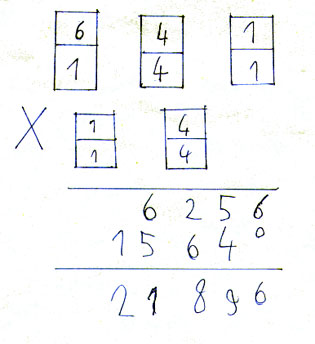 6 4 1
1 4 1
X 1 4
1 4
6 2 5 6
1 5 6 4 0
2 1 8 9 6